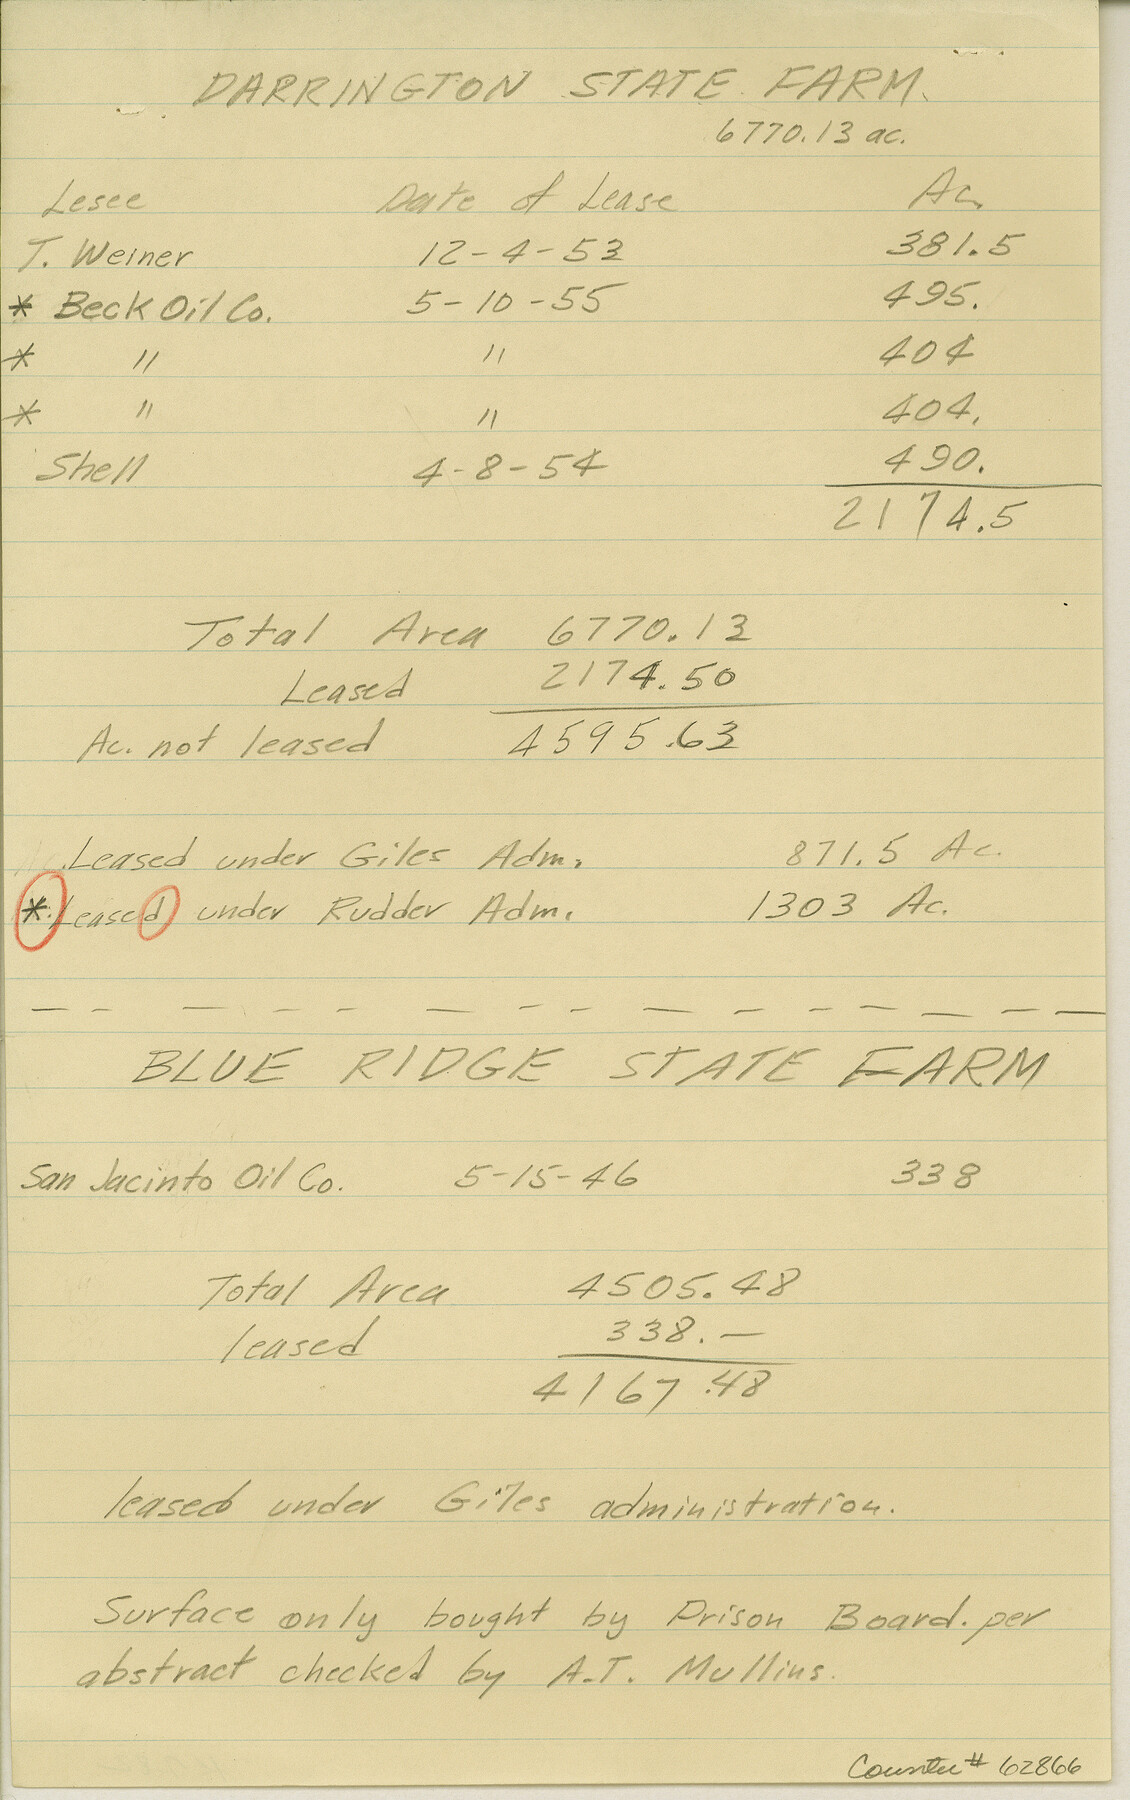 DARRINGTON STATE FARM.
6770.13 ac.
Lesee Date of Lease Ac.
T. Weiner 12-4-53 381.5
* Beck Oil Co. 5-10-55 495.
* " " 404
* " " 404.
Shell 4-8-54 490.
2174.5
Total Area 6770.13
Leased 2174.50
Ac. not leased 4595.63
Leased under Giles Adm. 871.5 Ac.
* Leased under Rudder Adm. 1303 Ac.
BLUE RIDGE STATE FARM
San Jacinto Oil Co. 5-15-46 338
Total Area 4505.48
leased 338.—
4167.48
leased under Giles administration.
Surface only bought by Prison Board. per
abstract checked by A.T. Mullins.
Counter # 62866